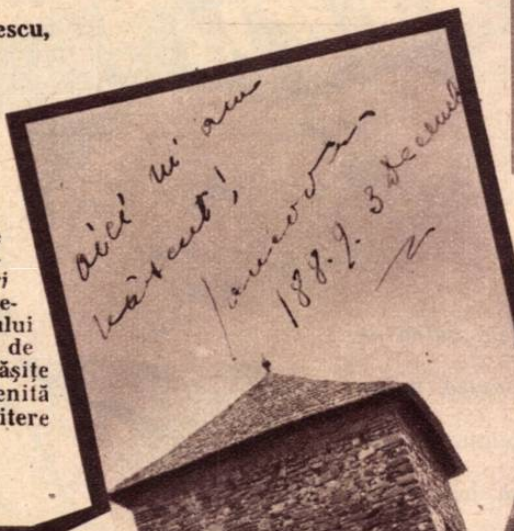 escu,
e-
ului
de
ășite
enită
itere
aici m'am
născut!
Iancovescu
188.9. 3 Decemb